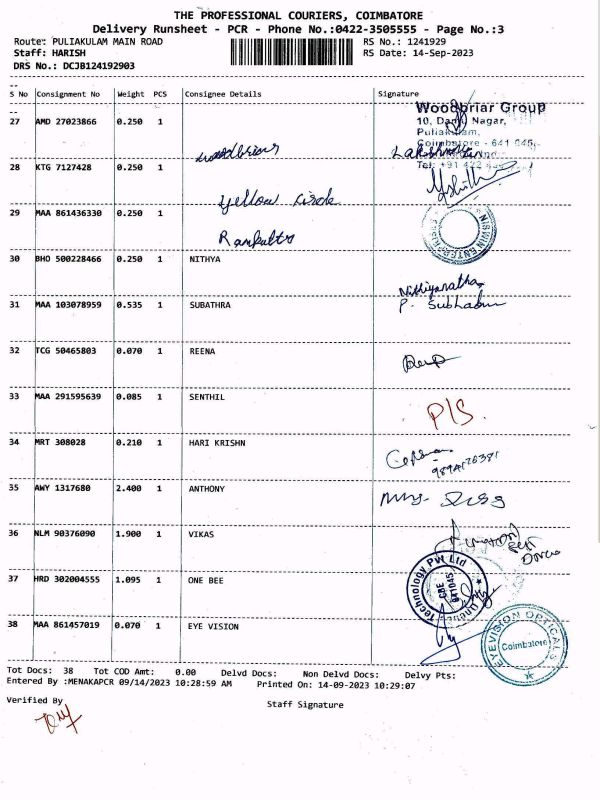 THE PROFESSIONAL COURIERS, COIMBATORE
Delivery Runsheet - PCR - Phone No.:0422-3505555 - Page No.:3
Route: PULIAKULAM MAIN ROAD RS No.: 1241929
Staff: HARISH RS Date: 14-Sep-2023
DRS No.: DCJB124192903
S No Consignment No Weight PCS Consignee Details Signature
Woodbriar Group
27 AMD 27023866 0.250 1 10, Nagar,
Puliakulam,
Coimbatore - 641 045,
woodbriar
28 KTG 7127428 0.250 1 Tel: +91 422
yellow circle
29 MAA 861436330 0.250 1 NISWIN ENTERPRISES
30 BHO 500228466 0.250 1 NITHYA
31 MAA 103078959 0.535 1 SUBATHRA
P.
32 TCG 50465803 0.070 1 REENA
33 MAA 291595639 0.085 1 SENTHIL
P/S.
34 MRT 308028 0.210 1 HARI KRISHN
35 AWY 1317680 2.400 1 ANTHONY
36 NLM 90376090 1.900 1 VIKAS
37 HRD 302004555 1.095 1 ONE BEE
Technology Pvt Ltd
CBE
641045
38 MAA 861457019 0.070 1 EYE VISION
EYEVISION OPTICALS
Coimbatore
Tot Docs: 38 Tot COD Amt: 0.00 Delvd Docs: Non Delvd Docs: Delvy Pts:
Entered By :MENAKAPCR 09/14/2023 10:28:59 AM Printed On: 14-09-2023 10:29:07
Verified By Staff Signature